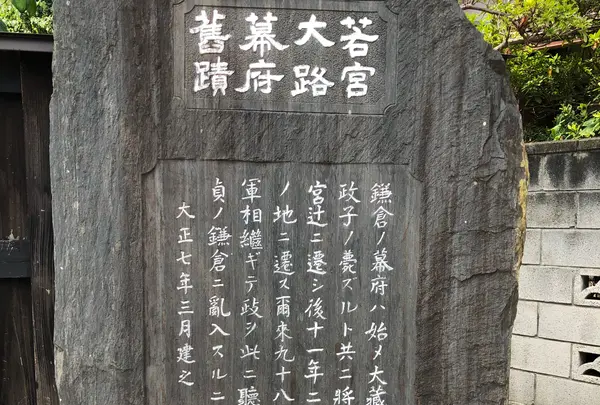 若宮
大路
幕府
舊蹟
鎌倉ノ幕府ハ始メ大藏
政子ノ薨ズルト共ニ將
宮辻ニ遷シ後十一年ニ
ノ地ニ遷ス爾來九十八
軍相繼ギテ政ヲ此ニ聽
貞ノ鎌倉ニ亂入スルニ
大正七年三月建之